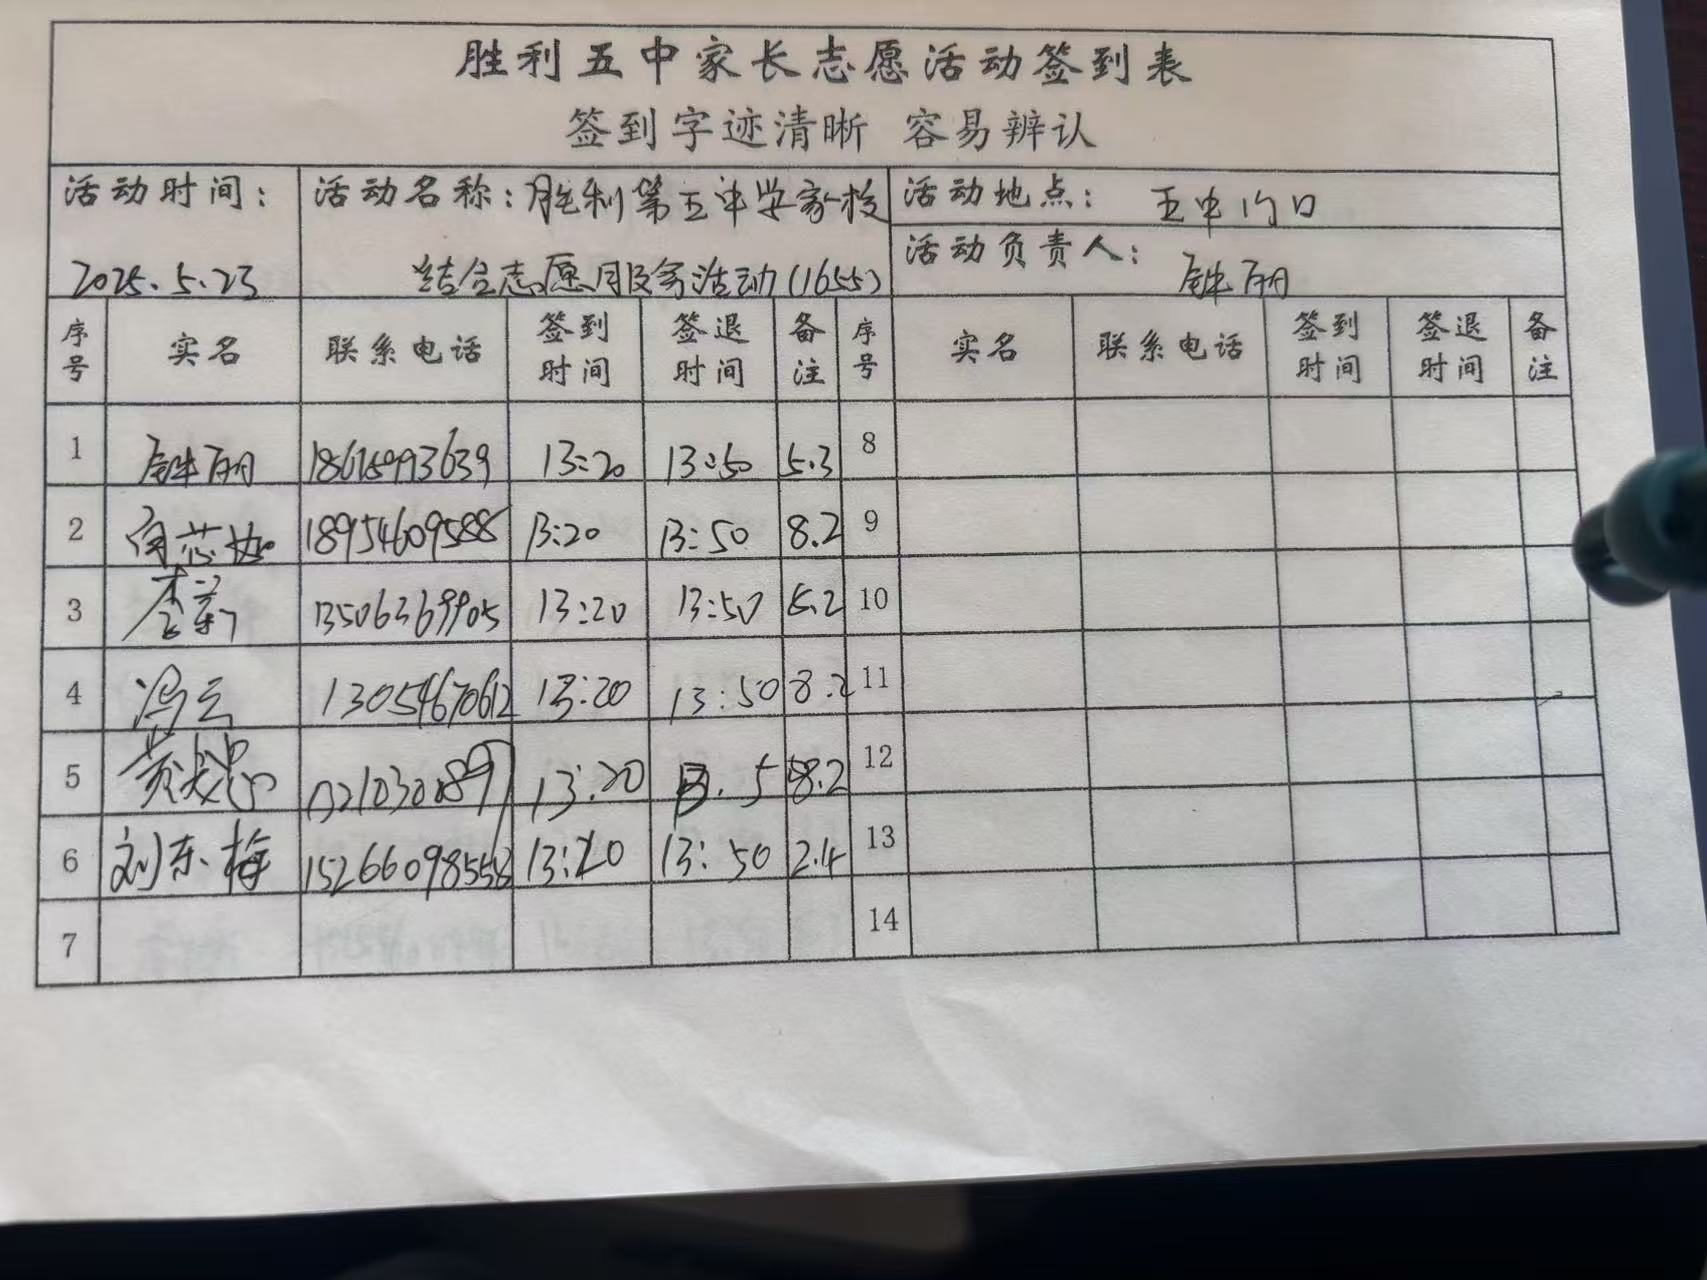 胜利五中家长志愿活动签到表
签到字迹清晰 容易辨认
活动时间: 2025.5.23
活动名称:胜利第五中学家校
结合志愿服务活动(1655)
活动地点: 五中门口
活动负责人:
序号 实名 联系电话 签到时间 签退时间 备注 序号 实名 联系电话 签到时间 签退时间 备注
1 13:20 13:50 5.3 8
2 18954609588 13:20 13:50 8.2 9
3 李新 13506369905 13:20 13:50 5.2 10
4 冯云 13054670612 13:20 13:50 8.2 11
5 13:20 8.2 12
6 刘东梅 13:20 13:50 2.4 13
7 14